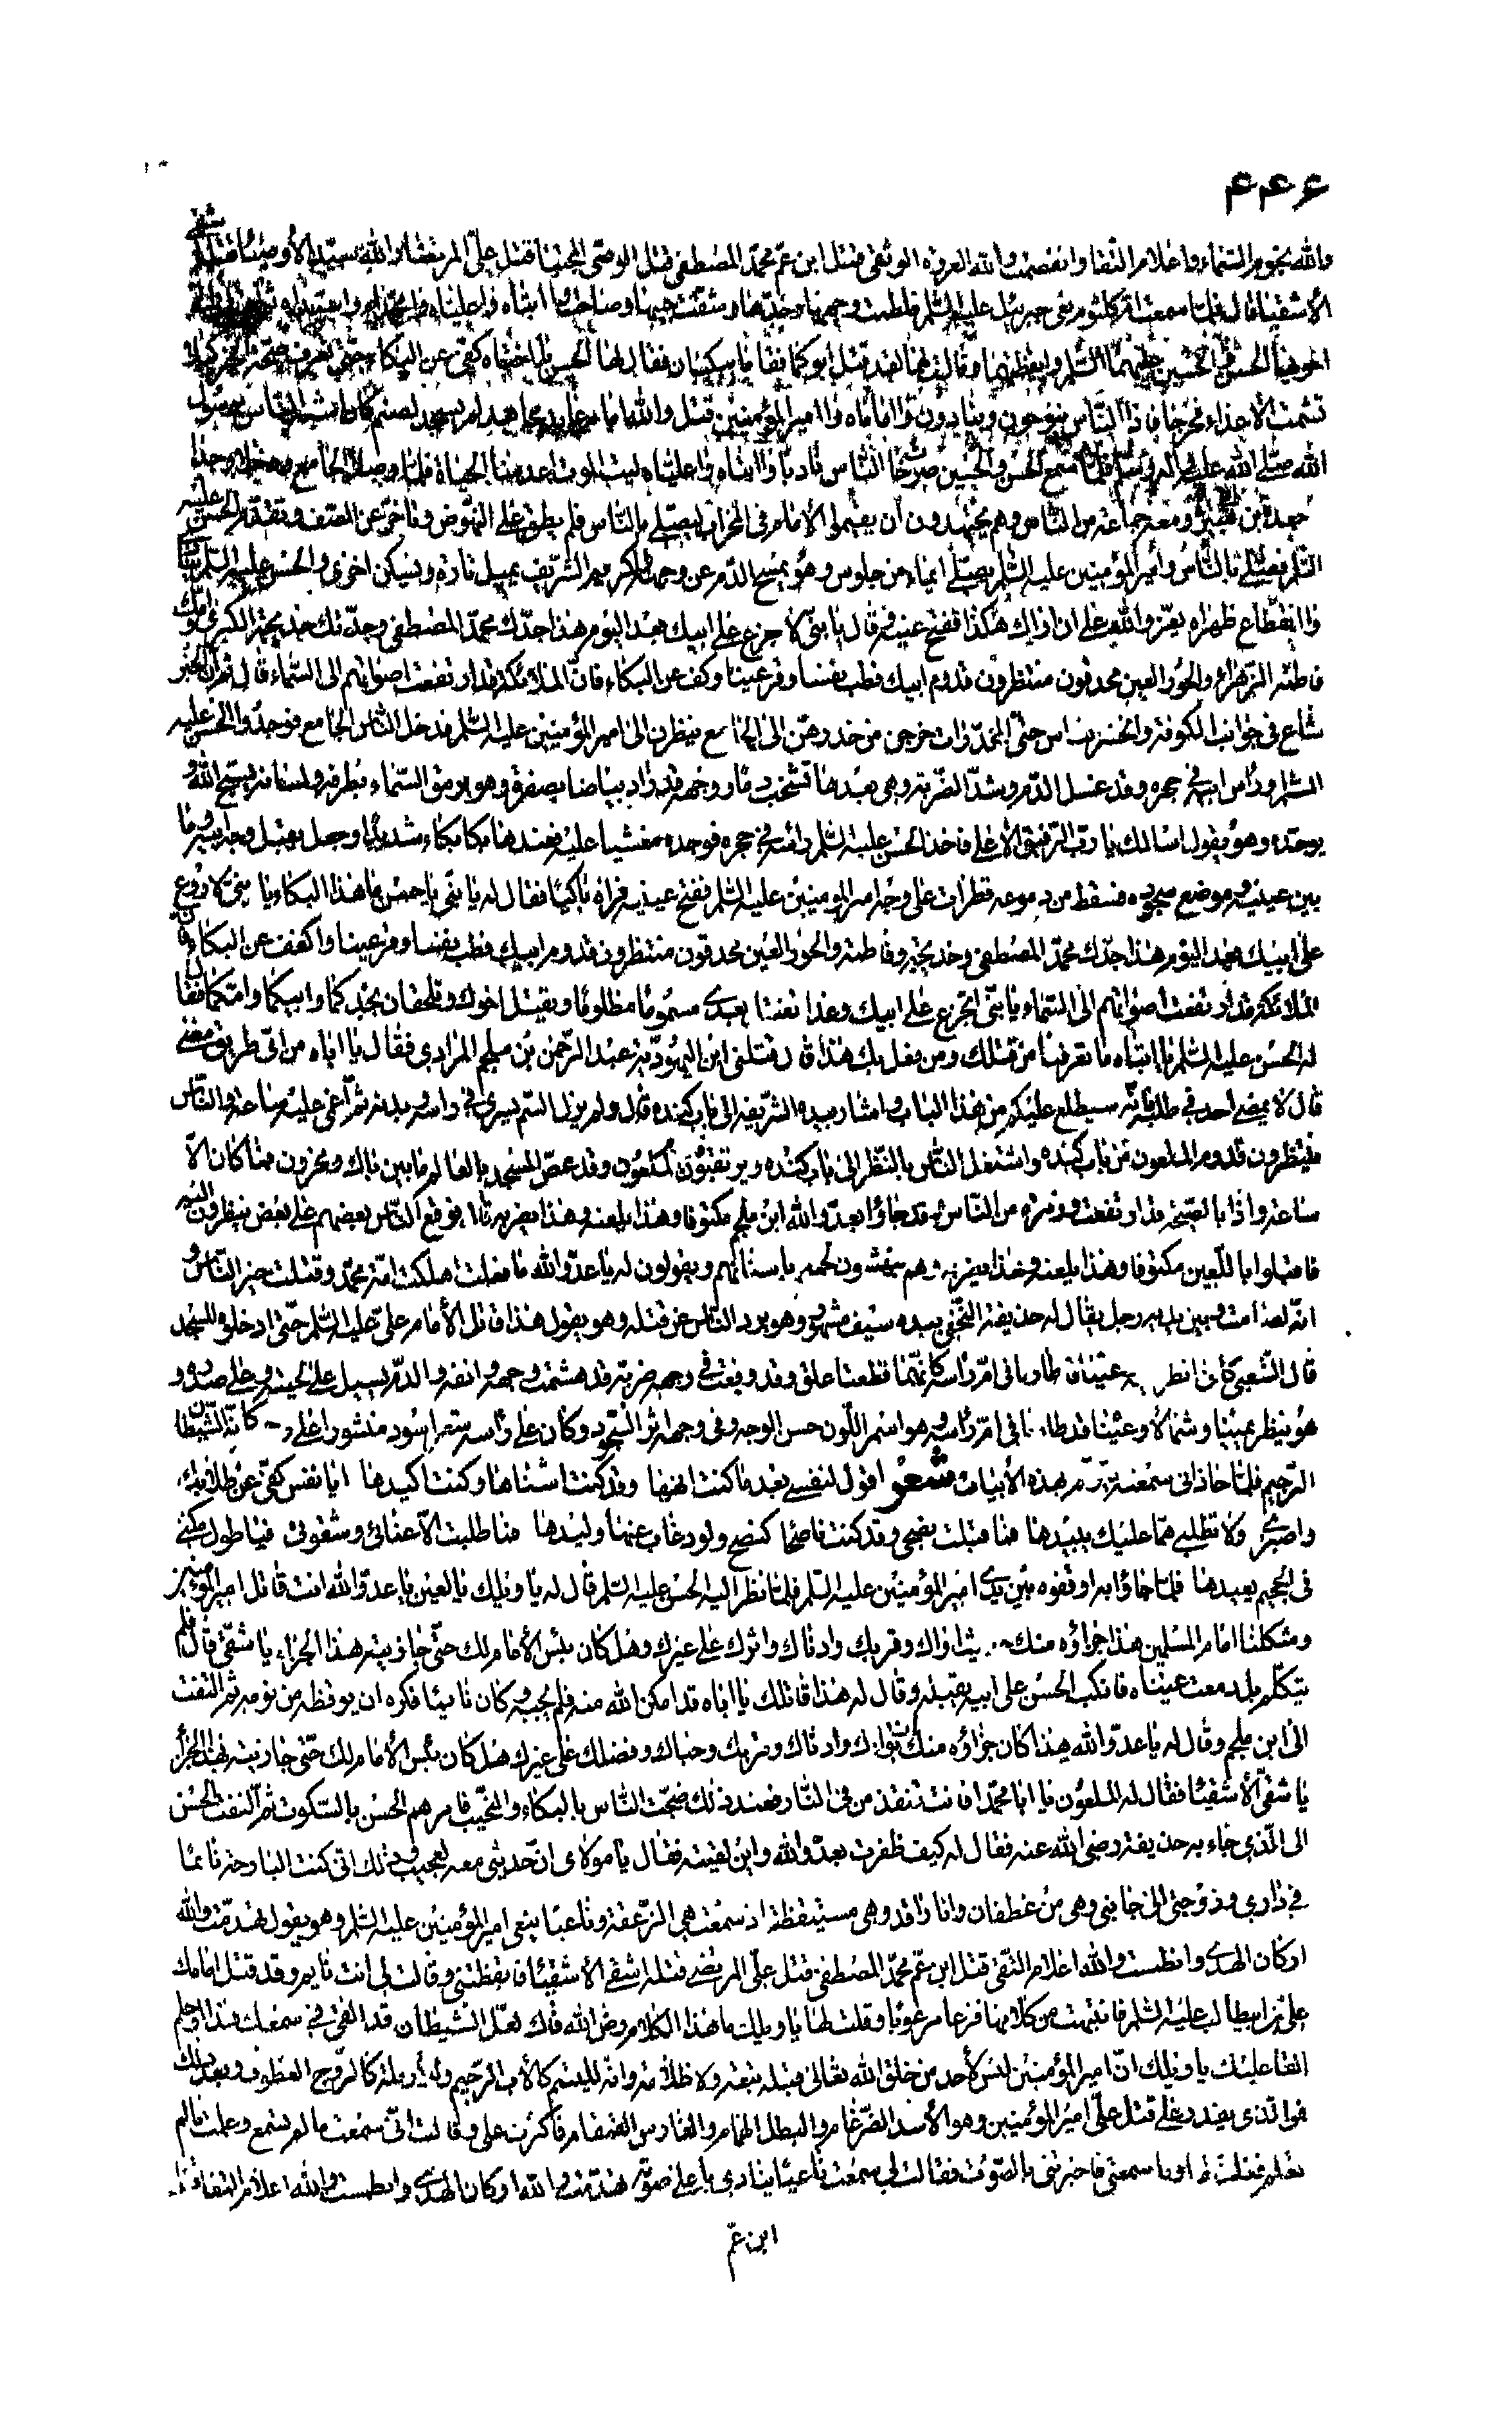 ۴۴۶
والله نجوم السّماء واعلام التّقا وانفصمت والله العروة الوثقى قتل ابن عمّ محمّد المصطفى قتل الوصىّ المجتبى قتل علىّ المرتضى والله سيّد الأوصياء قتله اشقى
الأشقيا قال فلمّا سمعت امّ كلثوم نعى جبرئيل عليه السّلم فلطمت وجهها وخدّها وشقّت جيبها وصاحت وا ابتاه وا عليّاه وا محمّداه وا سيّداه ثمّ
اخويها الحسن والحسين عليهما السّلم وايقظتهما وقالت لهما لقد قتل ابوكما فقاما يبكيان فقال لها الحسن يا اختاه كفّى عن البكاء حتّى نعرف صحّة الخبر كيلا
تشمت الأعداء فخرجا فاذا النّاس ينوحون وينادون وا اماماه وا امير المؤمنين قتل والله امام عابد مجاهد لم يسجد لصنم كان اشبه النّاس برسول
الله صلّى الله عليه واله وسلّم فلمّا سمع الحسن والحسين صرخات النّاس ناديا وا ابتاه وا عليّاه ليت الموت اعدمنا الحياة فلمّا وصلا الجامع ودخلا وجدا
جعدة بن هبيرة ومعه جماعة من النّاس وهم يجتهدون ان يقيموا الأمام فى المحراب ليصلّى بالنّاس فلم يطق على النّهوض وتأخّر عن الصّف وتقدّم الحسن عليه
السّلم فصلّى بالنّاس وأمير المؤمنين عليه السّلم يصلّى ايماء من جلوس وهو يمسح الدّم عن وجهه الكريم الشّريف يميل تارة ويسكن اخرى والحسن عليه السّلم ينادى
وا انقطاع ظهراه يعزّ والله علىّ ان اراك هكذا ففتح عينيه وقال يا بنىّ لا جزع على ابيك بعد اليوم هذا جدّك محمّد المصطفى وجدّتك خديجة الكبرى وامّك
فاطمة الزّهراء والحور العين محدقون منتظرون قدوم ابيك فطب نفسا وقرّ عينا وكفّ عن البكاء فانّ الملائكة قد ارتفعت اصواتهم الى السّماء قال ثمّ انّ الخبر
شاع فى جوانب الكوفة وانحشر النّاس حتّى المخدّرات خرجن من خدورهنّ الى الجامع ينظرن الى امير المؤمنين عليه السّلم فدخل النّاس الجامع فوجدوا الحسن عليه
السّلم ورأس ابيه فى حجره وقد غسل الدّم وشدّ الضّربة وهى بعدها تشخب دما ووجهه قد زاد بياضا بصفرة وهو يرمق السّماء بطرفه ولسانه يسبّح الله و
يوحّده وهو يقول اسالك يا ربّ الرّفيق الأعلى فاخذ الحسن عليه السّلم رأسه فى حجره فوجده مغشيا عليه فعندها بكا بكاء شديدا وجعل يقبّل وجه ابيه وما
بين عينيه وموضع سجوده فسقط من دموعه قطرات على وجه امير المؤمنين عليه السّلم ففتح عينيه فراه باكيا فقال له يا بنىّ يا حسن ما هذا البكاء يا بنىّ لا روع
على ابيك بعد اليوم هذا جدّك محمّد المصطفى وخديجة وفاطمة والحور العين محدقون منتظرون قدوم ابيك فطب نفسا وقرّ عينا واكفف عن البكاء فانّ
الملائكة قد ارتفعت اصواتهم الى السّماء يا بنىّ اتجزع على ابيك وغدا تقتل بعدى مسموما مظلوما ويقتل اخوك وتلحقان بجدّكما وابيكما وامّكما فقال
له الحسن عليه السّلم يا ابتاه ما تعرفنا من قتلك ومن فعل بك هذا قال قتلنى ابن اليهوديّة عبد الرّحمن بن ملجم المرادى فقال يا اباه من اىّ طريق مضى
قال لا يمضى احد فى طلبه فانّه سيطلع عليكم من هذا الباب واشار بيده الشّريفة الى باب كنده قال ولم يزل السّم يسرى فى راسه وبدنه ثمّ اغمى عليه ساعة والنّاس
ينتظرون قدوم الملعون من باب كنده واشتغل النّاس بالنّظر الى باب كنده ويرتقبون الملعون وقد غصّ المسجد بالعالم ما بين باك ومحزون فما كان الّا
ساعة واذا بالصّيحة قد ارتفعت وزمرة من النّاس وقد جاؤا بعدوّ الله ابن ملجم مكتوفا وهذا يلعنه وهذا يضربه قال فوقع النّاس بعضهم على بعض ينظرون اليه
فاقبلوا باللّعين مكتوفا وهذا يلعنه وهذا يضربه وهم ينهشون لحمه باسنانهم ويقولون له يا عدوّ الله ما فعلت اهلكت امّة محمّد وقتلت خير النّاس و
انّه لصامت وبين يديه رجل يقال له حذيفة النّخعى بيده سيف مشهور وهو يردّ النّاس عن قتله وهو يقول هذا قاتل الأمام علىّ عليه السّلم حتّى ادخلوه المسجد
قال الشّعبى كأنّى انظر اليه وعيناه قد طارتا فى امّ رأسه كانّهما قطعتا علق وقد وقعت فى وجهه ضربة قد هشمت وجهه وانفه والدّم يسيل على لحيته وعلى صدره و
هو ينظر يمينا وشمالا وعيناه قد طارتا فى امّ رأسه وهو اسمر اللّون حسن الوجه وفى وجهه اثر السّجود وكان على رأسه شعر اسود منشورا على وجهه كانّه الشّيطان
الرّجيم فلمّا حاذانى سمعته يترنّم بهذه الأبيات شعر اقول لنفسى بعد ما كنت انهها وقد كنت اسناها وكنت اكيدها ايا نفس كفّى عن طلابك
واصبرى ولا تطلبى همّا عليك يبيدها فما قبلت نصحى وقد كنت ناصحا كنصح ولود غاب عنها وليدها فما طلبت الّا عنائى وشقوتى فيا طول مكثى
فى الجحيم بعيدها فلمّا جاؤا به اوقفوه بين يدى امير المؤمنين عليه السّلم فلمّا نظر اليه الحسن عليه السّلم قال له يا ويلك يا لعين يا عدوّ الله انت قاتل امير المؤمنين
ومثكلنا امام المسلمين هذا جزاؤه منك حيث اواك وقرّبك وادناك واثرك على غيرك وهل كان بئس الأمام لك حتّى جازيته هذا الجزاء يا شقىّ قال فلم
يتكلّم بل دمعت عيناه فانكبّ الحسن على ابيه يقبّله وقال له هذا قاتلك يا اباه قد امكن الله منه فلم يجبه وكان نائما فكره ان يوقظه من نومه ثمّ التفت
الى ابن ملجم وقال له يا عدوّ الله هذا كان جزاؤه منك بوّأك وادناك وقرّبك وحباك وفضّلك على غيرك هل كان بئس الأمام لك حتّى جازيته بهذا الجزاء
يا شقىّ الأشقيا فقال له الملعون يا ابا محمّد افانت تنقذ من فى النّار فعند ذلك ضجّت النّاس بالبكاء والنّحيب فامرهم الحسن بالسّكوت ثمّ التفت الحسن
الى الّذى جاء به حذيفة رضى الله عنه فقال له كيف ظفرت بعدوّ الله واين لقيته فقال يا مولاى انّ حديثى معه لعجيب وذلك انّى كنت البارحة نائما
فى دارى وزوجتى الى جانبى وهى من غطفان وانا راقد وهى مستيقظة اذ سمعت هى الزّعقة وناعيا ينعى امير المؤمنين عليه السّلم وهو يقول تهدّمت والله
اركان الهدى وانطمست والله اعلام التّقى قتل ابن عمّ محمّد المصطفى قتل علىّ المرتضى قتله اشقى الأشقياء فايقظتنى وقالت لى انت نايم وقد قتل امامك
علىّ بن ابيطالب عليه السّلم فانتبهت من كلامها فزعا مرعوبا وقلت لها يا ويلك ما هذا الكلام رضّ الله فاك لعلّ الشّيطان قد القى فى سمعك هذا او حلم
القا عليك يا ويلك انّ امير المؤمنين ليس لأحد من خلق الله تعالى قبله تبعة ولا ظلامة وانّه لليتيم كالأب الرّحيم وللأرملة كالزّوج العطوف وبعد ذلك
فمن الّذى يقدر على قتل علىّ امير المؤمنين وهو الأسد الضّرغام والبطل الهمام والفارس القمقام فاكثرت علىّ وقالت انّى سمعت ما لم تسمع وعلمت ما لم
تعلم فقلت لها وما سمعتى فاخبرتنى بالصّوت فقالت لى سمعت ناعيا ينادى باعلى صوته تهدّمت والله اركان الهدى وانطمست والله اعلام التّقا قتل
ابن عمّ